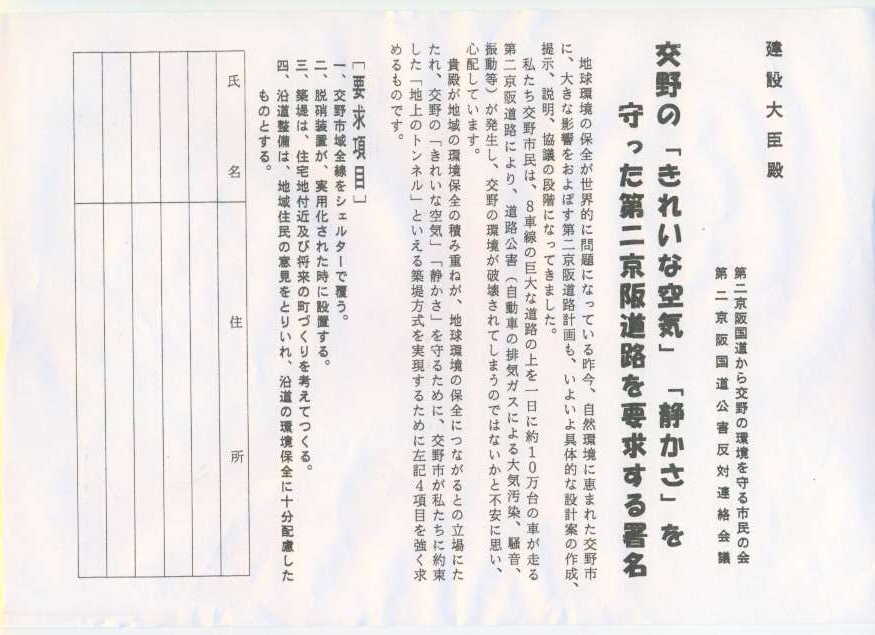 建設大臣殿
第二京阪国道から交野の環境を守る市民の会
第二京阪国道公害反対連絡会議
交野の「きれいな空気」「静かさ」を
守った第二京阪道路を要求する署名
地球環境の保全が世界的に問題になっている昨今、自然環境に恵まれた交野市
に、大きな影響をおよぼす第二京阪道路計画も、いよいよ具体的な設計案の作成、
提示、説明、協議の段階になってきました。
私たち交野市民は、8車線の巨大な道路の上を一日に約10万台の車が走る
第二京阪道路により、道路公害（自動車の排気ガスによる大気汚染、騒音、
振動等）が発生し、交野の環境が破壊されてしまうのではないかと不安に思い、
心配しています。
貴殿が地域の環境保全の積み重ねが、地球環境の保全につながるとの立場にた
たれ、交野の「きれいな空気」「静かさ」を守るために、交野市が私たちに約束
した「地上のトンネル」といえる築堤方式を実現するために左記4項目を強く求
めるものです。
［要求項目］
一、交野市域全線をシェルターで覆う。
二、脱硝装置が、実用化された時に設置する。
三、築堤は、住宅地付近及び将来の町づくりを考えてつくる。
四、沿道整備は、地域住民の意見をとりいれ、沿道の環境保全に十分配慮した
ものとする。
氏名
住所